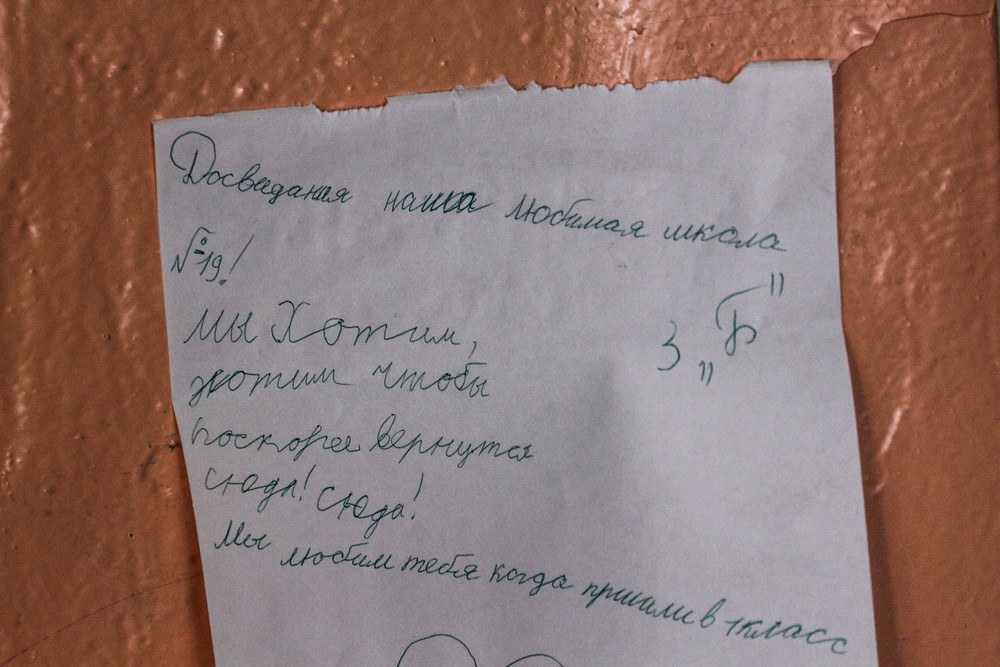 Досведания наша любимая школа
№19!
3 „Б"
Мы Хотим,
хотим чтобы
поскорее вернутся
сюда! сюда!
Мы любим тебя когда пришли в 1 класс